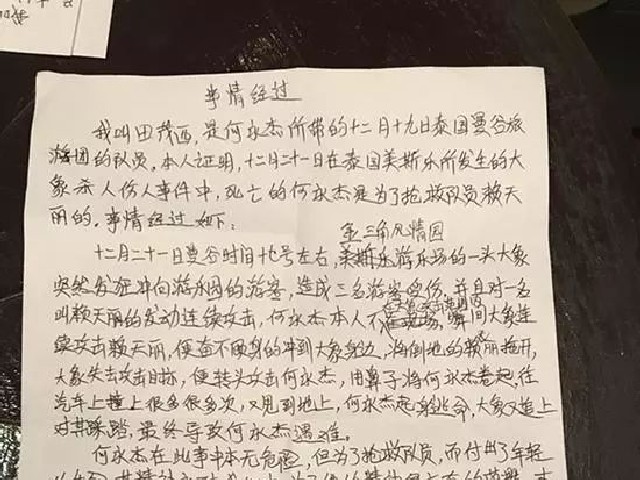 事情经过
我叫田茂西，是何永杰所带的十二月十九日泰国曼谷旅
游团的队员，本人证明，十二月二十一日在泰国美斯乐所发生的大
象杀人伤人事件中，死亡的何永杰是为了抢救队员赖天
丽的。事情经过如下：
金三角风情园
十二月二十一日曼谷时间 左右，美斯乐游乐场的一头大象
突然发狂冲向游乐园的游客，造成三名游客受伤，并且对一名
叫赖天丽的发动连续攻击，何永杰本人不 瞬间大象连
续攻击赖天丽，便奋不顾身的冲到大象身边，将倒地的赖 丽拖开，
大象失去攻击目标，便转头攻击何永杰，用鼻子将何永杰卷起，往
汽车上撞上很多很多次，又 到地上，何永杰起 逃命，大象又追上
对其踩踏，最终导致何永杰遇难。
何永杰在此事中本无危险，但为了抢救队员，而付出了年轻